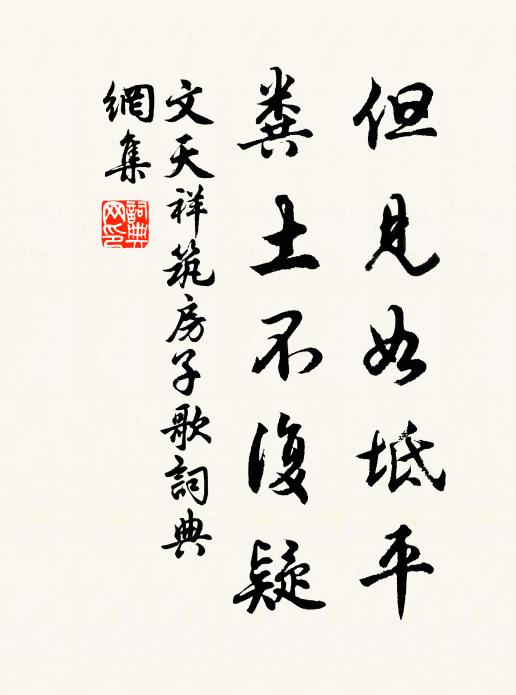 但見如坻平
糞土不復疑
文天祥筑房子歌詞典
網集
詞典網印